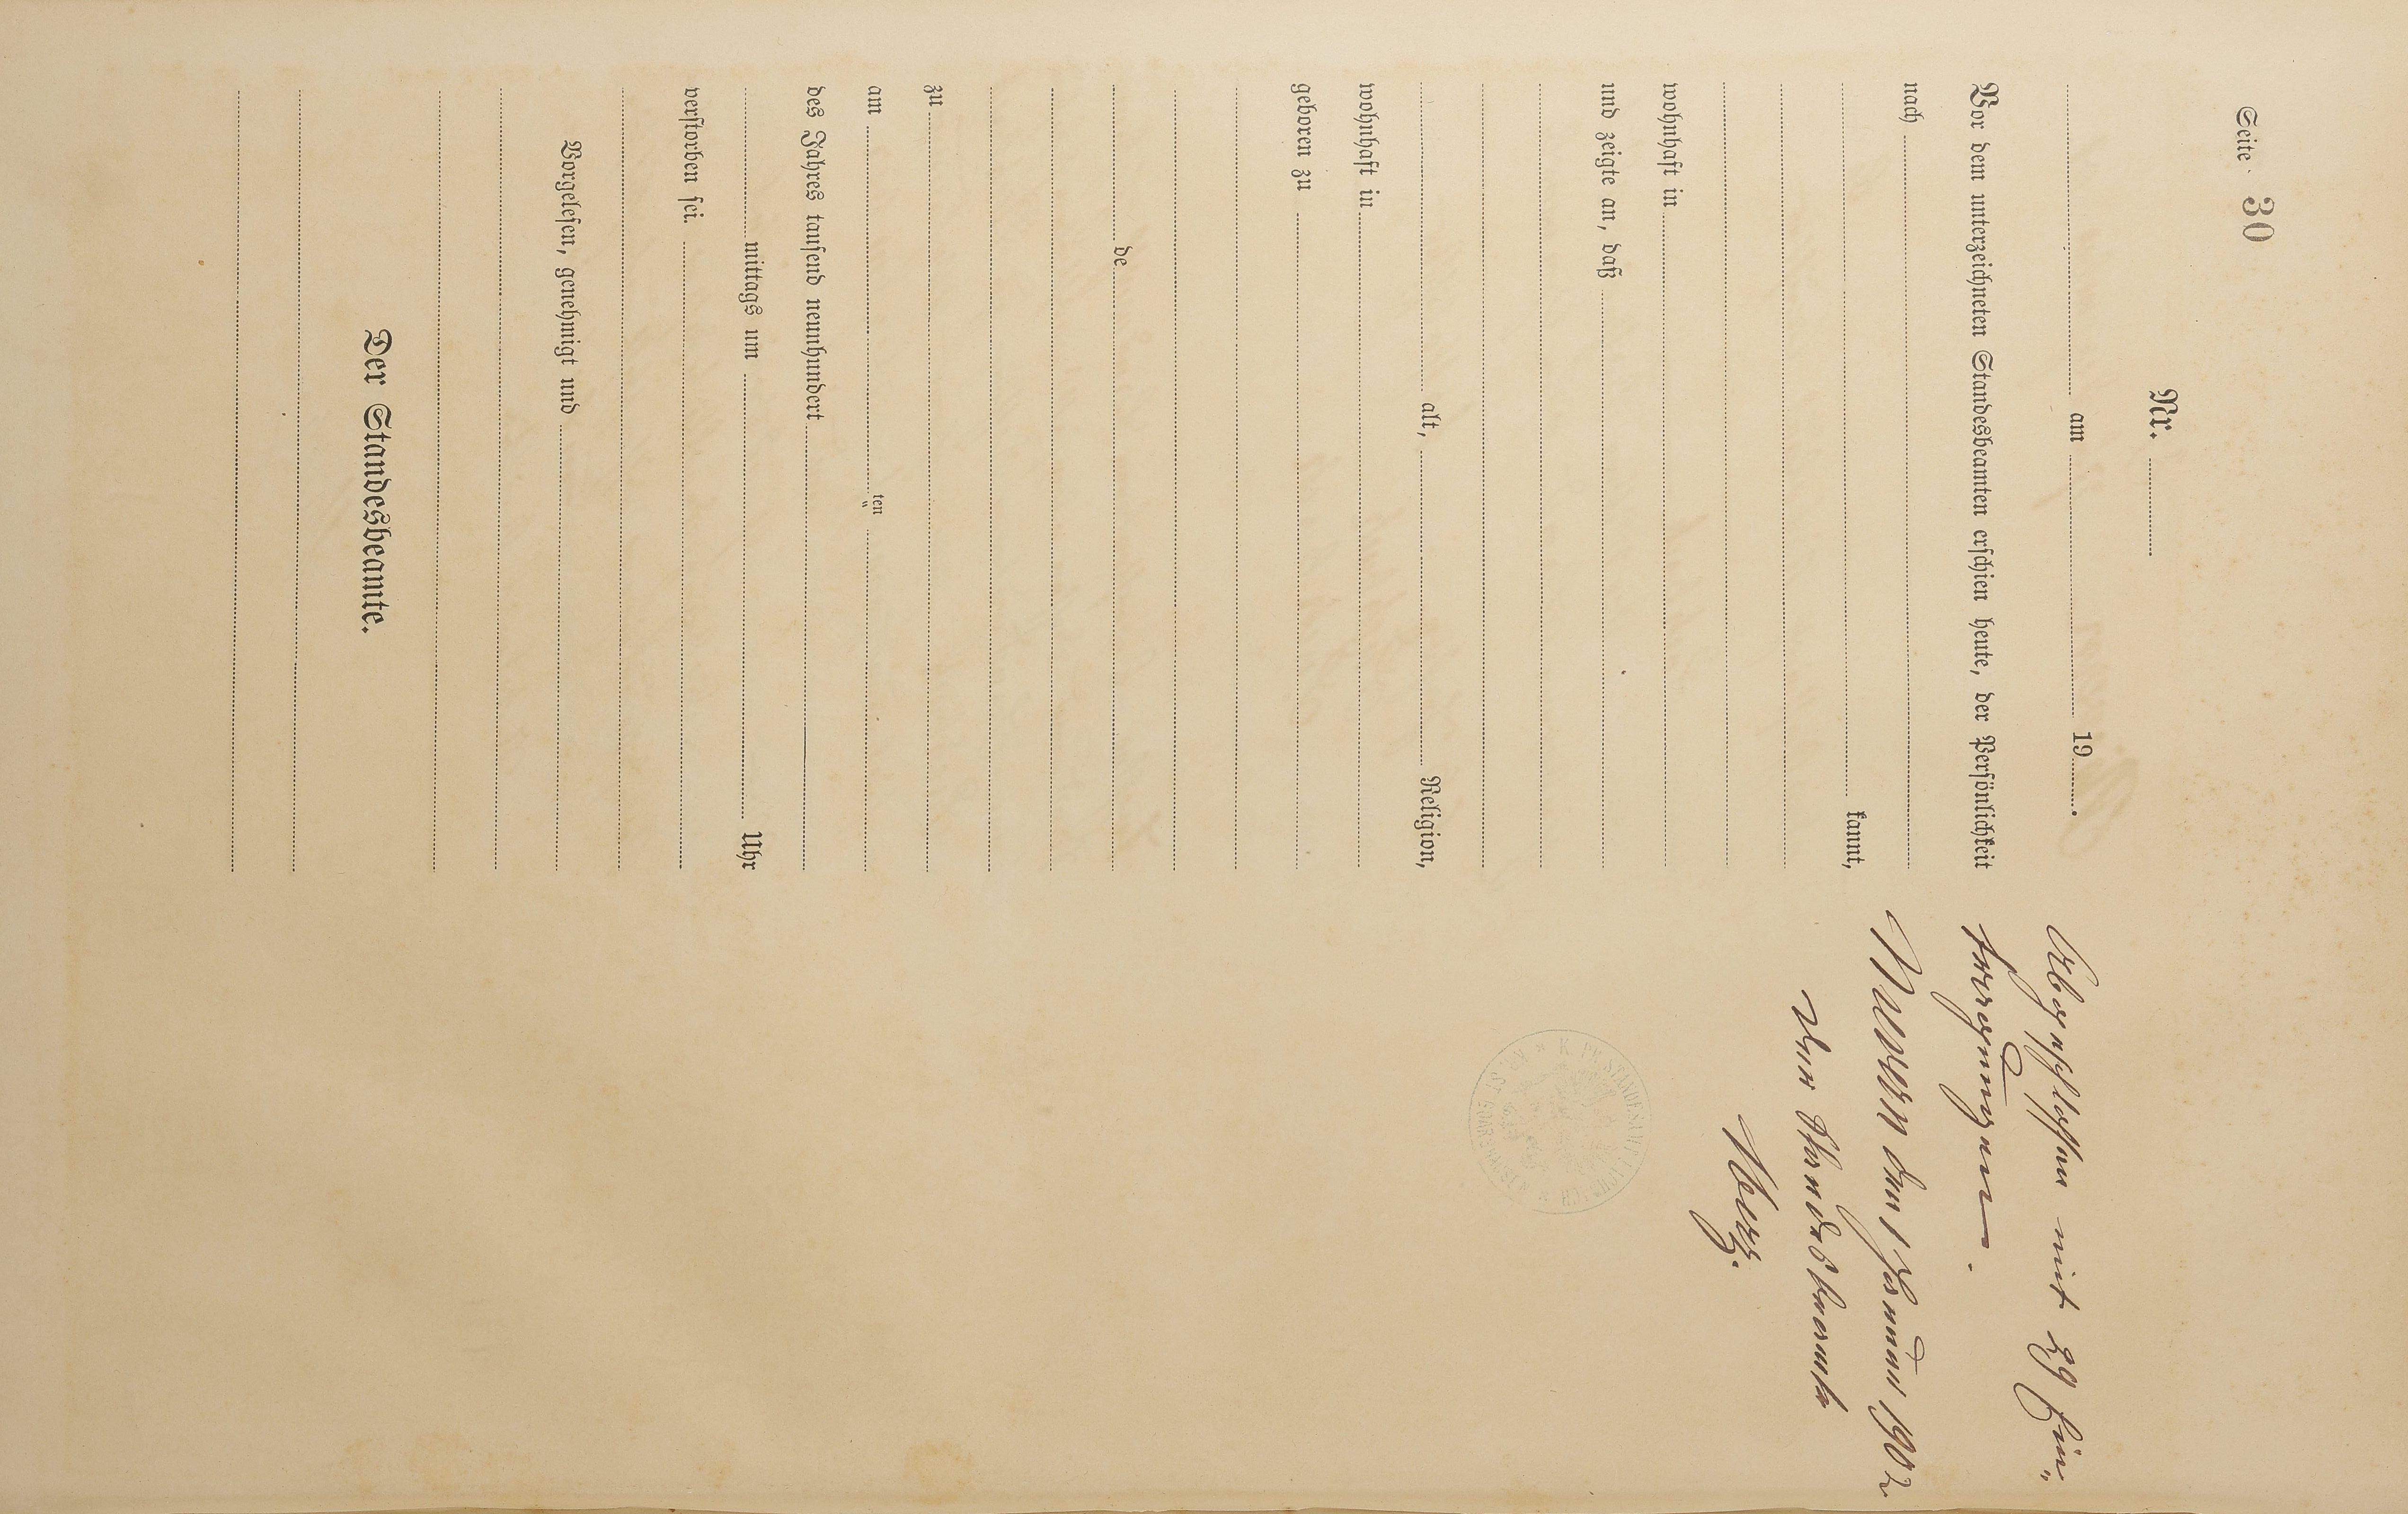 Seite 30
Nr.
am 19 .
Vor dem unterzeichneten Standesbeamten erschien heute, der Persönlichkeit
nach
kannt,
wohnhaft in
und zeigte an, daß
alt, Religion,
wohnhaft in
geboren zu
de
zu
am ten
des Jahres tausend neunhundert
mittags um Uhr
verstorben sei.
Vorgelesen, genehmigt und
Der Standesbeamte.
Abgeschlossen mit 29 Ein„
tragungen.
den 1 Januar 1902
Der Standesbeamte